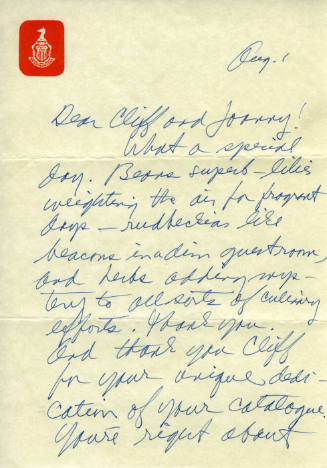 Aug. 1
Dear Cliff and Joanny!
What a special
day. Beans superb – lilies
weighting the air for fragrant
days – rudbeckias like
beacons in a dim guest room,
and herbs adding mys-
tery to all sorts of culinary
efforts. Thank you.
And thank you Cliff
for your unique dedi-
cation of your catalogue.
You're right about